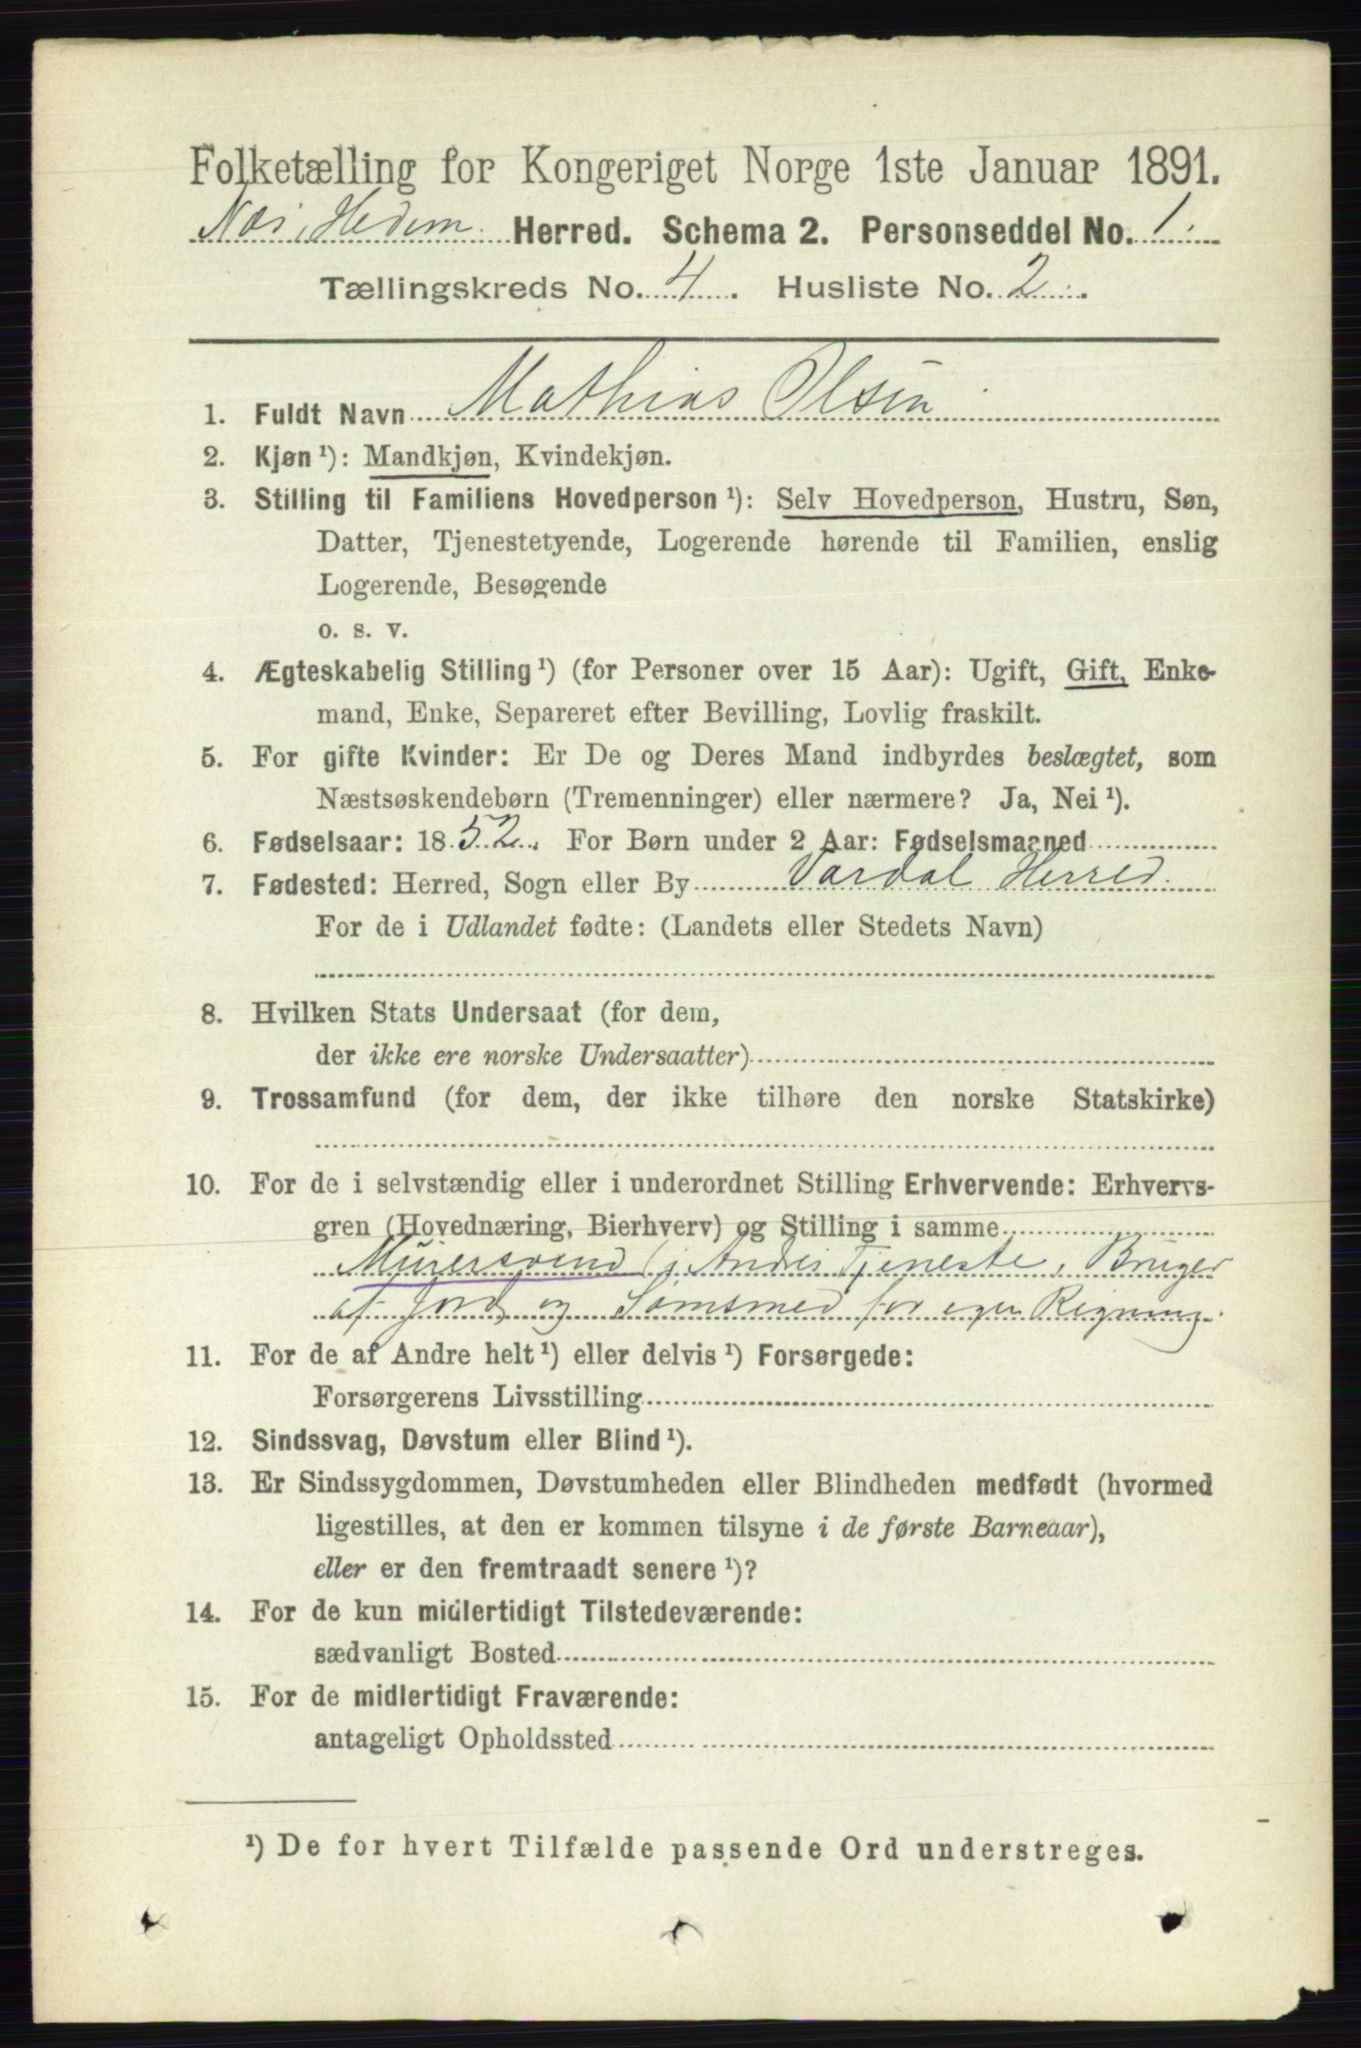 Folketælling for Kongeriget Norge 1ste Januar 1891.
Nes, Hedem. Herred. Schema 2. Personseddel No. 1.
Tællingskreds No. 4. Husliste No. 2.
1. Fuldt Navn Mathias Olsen
2. Kjøn ¹): Mandkjøn, Kvindekjøn.
3. Stilling til Familiens Hovedperson ¹): Selv Hovedperson, Hustru, Søn,
Datter, Tjenestetyende, Logerende hørende til Familien, enslig
Logerende, Besøgende
o. s. v.
4. Ægteskabelig Stilling ¹) (for Personer over 15 Aar): Ugift, Gift, Enke-
mand, Enke, Separeret efter Bevilling, Lovlig fraskilt.
5. For gifte Kvinder: Er De og Deres Mand indbyrdes beslægtet, som
Næstsøskendebørn (Tremenninger) eller nærmere? Ja, Nei ¹).
6. Fødselsaar: 1852. For Børn under 2 Aar: Fødselsmaaned
7. Fødested: Herred, Sogn eller By Vardal Herred.
For de i Udlandet fødte: (Landets eller Stedets Navn)
8. Hvilken Stats Undersaat (for dem,
der ikke ere norske Undersaatter)
9. Trossamfund (for dem, der ikke tilhøre den norske Statskirke)
10. For de i selvstændig eller i underordnet Stilling Erhvervende: Erhvervs-
gren (Hovednæring, Bierhverv) og Stilling i samme
Murersvend (i Andres Tjeneste, Bruger
af Jord og Sømsmed for egen Regning.
11. For de af Andre helt ¹) eller delvis ¹) Forsørgede:
Forsørgerens Livsstilling
12. Sindssvag, Døvstum eller Blind ¹).
13. Er Sindssygdommen, Døvstumheden eller Blindheden medfødt (hvormed
ligestilles, at den er kommen tilsyne i de første Barneaar),
eller er den fremtraadt senere ¹)?
14. For de kun midlertidigt Tilstedeværende:
sædvanligt Bosted
15. For de midlertidigt Fraværende:
antageligt Opholdssted
¹) De for hvert Tilfælde passende Ord understreges.